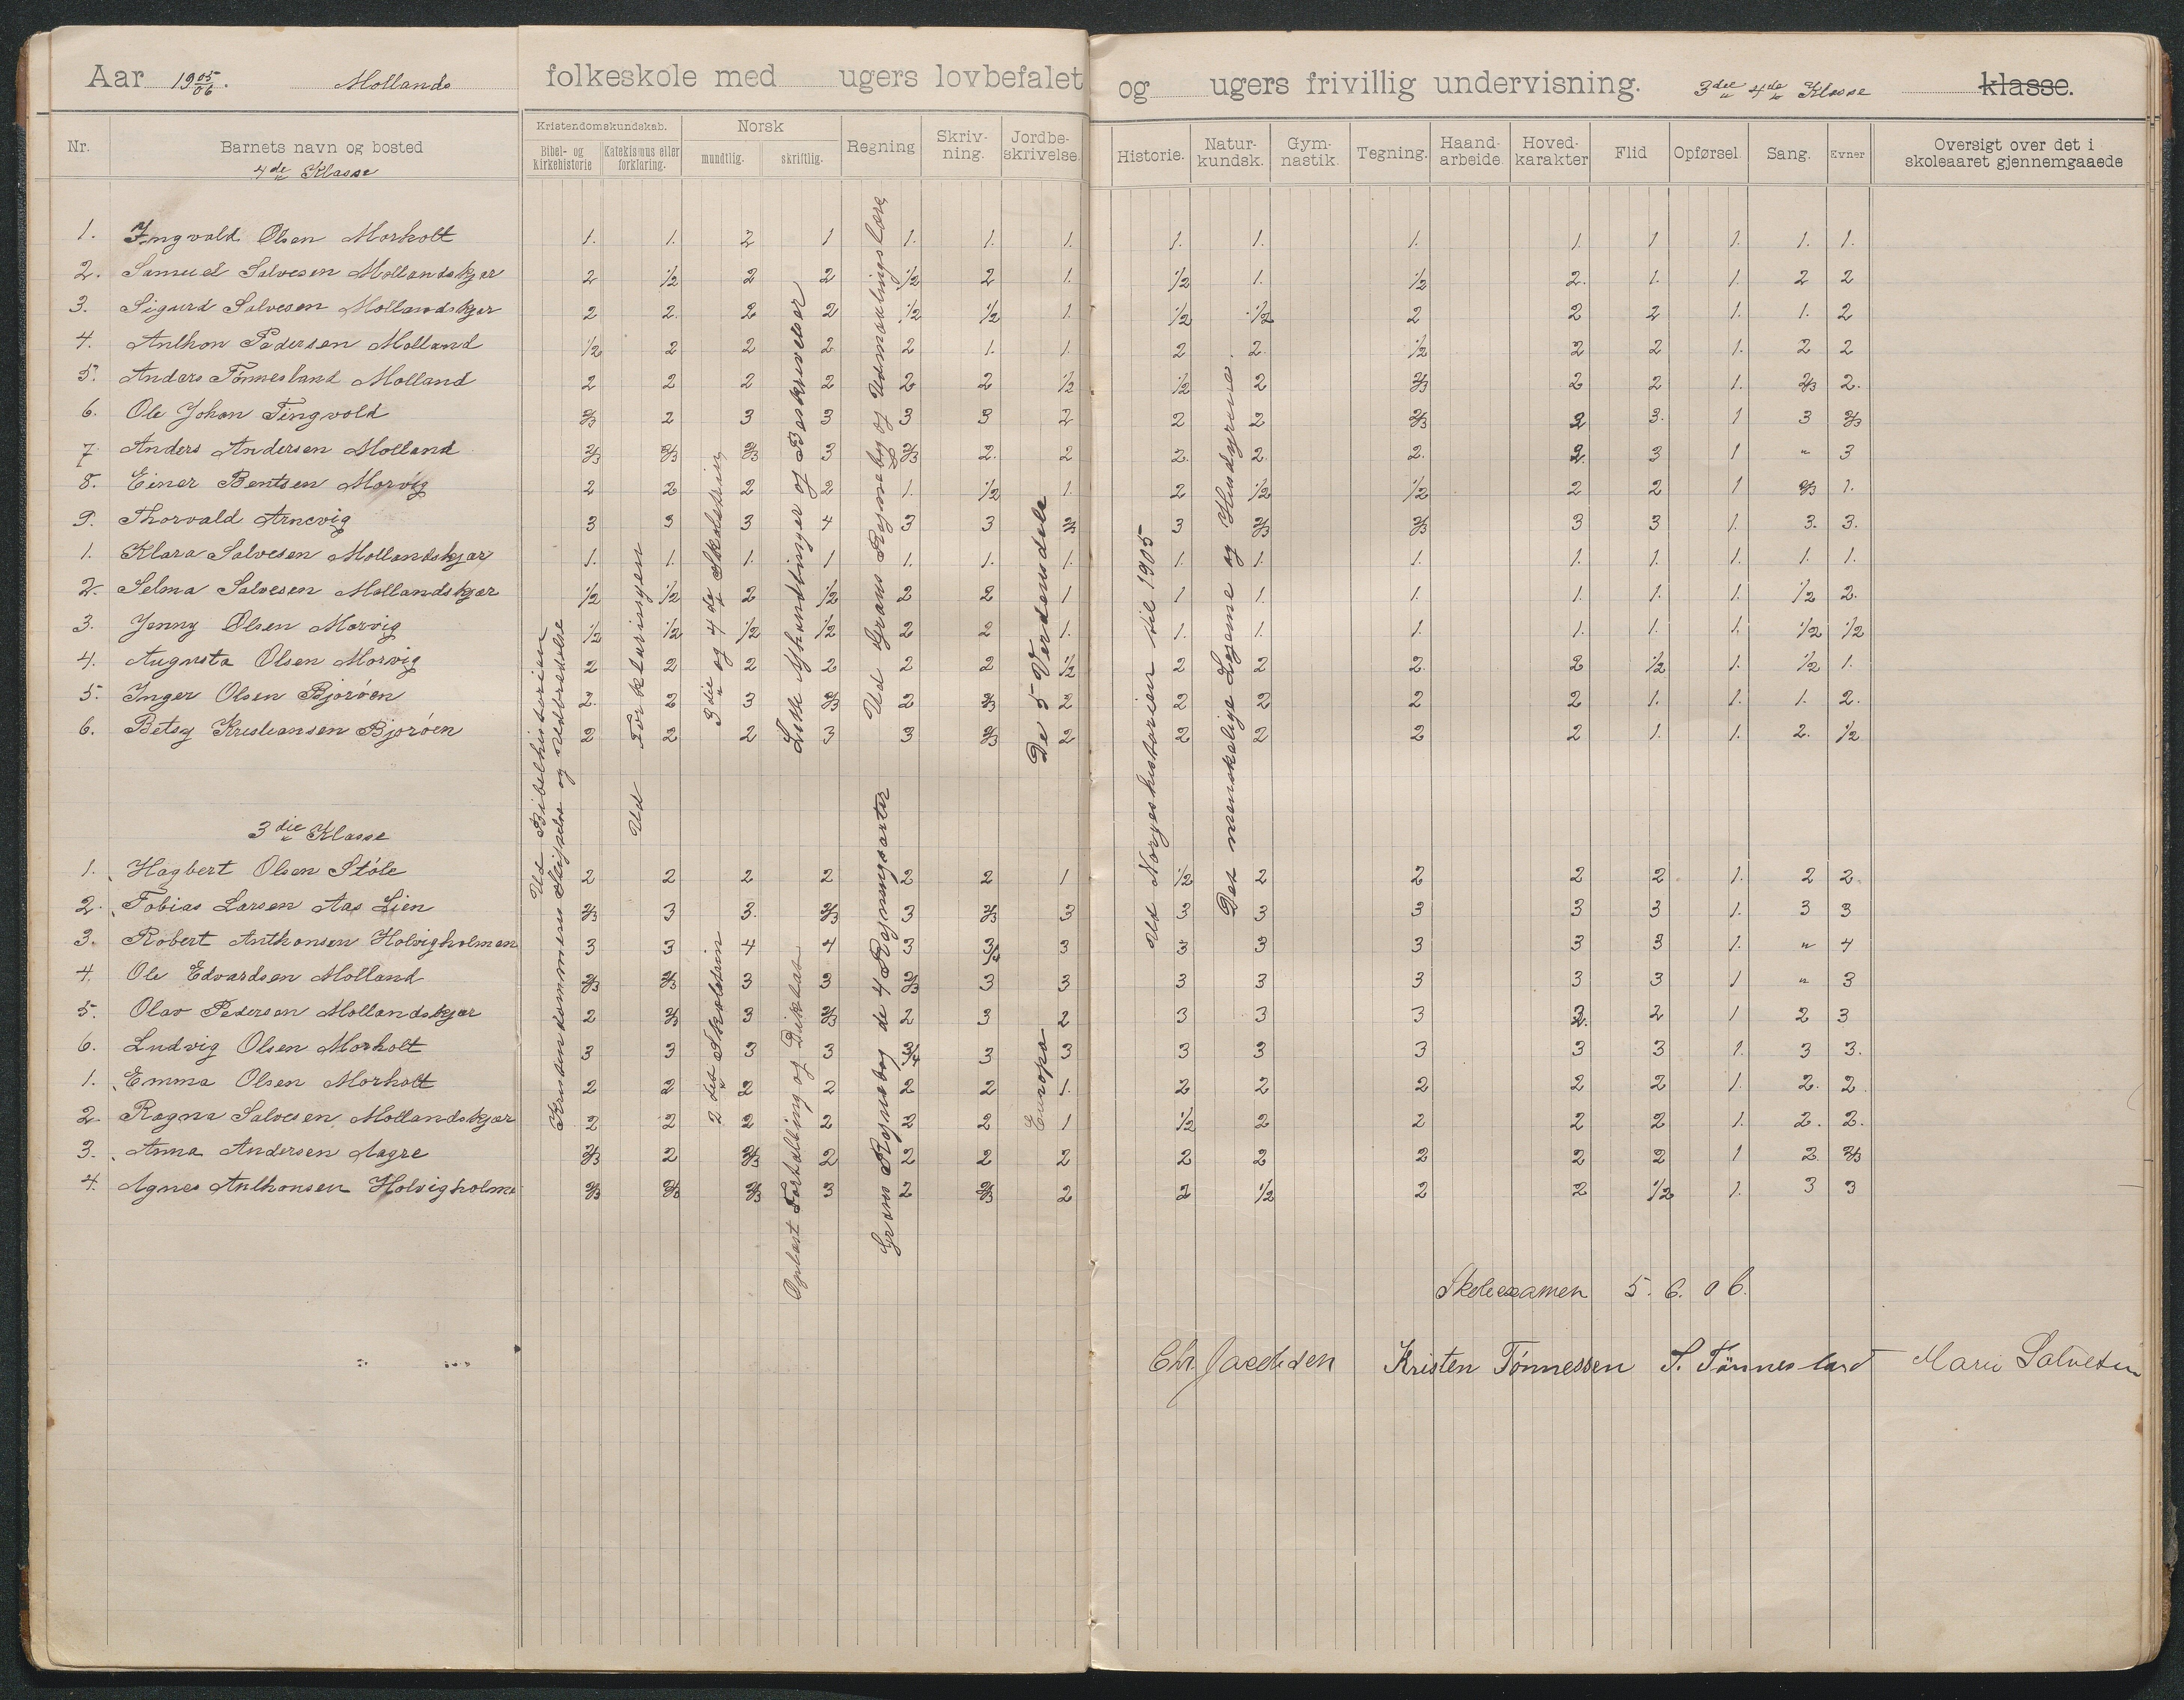 Aar 19 05/06. Mollands folkeskole med ugers lovbefalet og ugers frivillig undervisning. 3die 4de Klasse klasse.
Nr. Barnets navn og bosted Kristendomskundskab. Bibel- og kirkehistorie Katekismus eller forklaring. Norsk mundtlig. skriftlig. Regning Skriv-ning. Jordbe-skrivelse. Historie. Natur-kundsk. Gym-nastik. Tegning. Haand-arbeide. Hoved-karakter Flid Opførsel. Sang. Evner Oversigt over det i skoleaaret gjennemgaaede
4de Klasse
1. Ingvald Olsen Morholt 1. 1. 2 1 1. 1. 1. 1. 1. 1. 1. 1 1. 1. 1.
2. Samuel Salvesen Mollandskjær 2 1/2 2 2 1/2 2 1. 1/2 1. 1/2 2. 1. 1. 2 2
3. Sigurd Salvesen Mollandskjær 2 2. 2 2 1/2 1/2 1. 1/2 1/2 2 2 2 1. 1. 2
4. Anthon Pedersen Molland 1/2 2 2 2 2 1. 1. 2 2. 1/2 2 2 1. 2 2
5. Anders Tönnesland Molland 2 2 2 2 2 2 1/2 1/2 2 2/3 2 2 1. 2/3 2.
6. Ole Johan Tingvold 2/3 2 3 3 3 3 2 2 2 2/3 2 3. 1 3 2/3
7. Anders Andersen Molland 2/3 2/3 2/3 3 2/3 2. 2 2. 2. 2. 2. 3 1 " 3
8. Einar Bentsen Morvig 2 2 2 2 1. 1/2 1. 2 1/2 1/2 2 2 1 2/3 1.
9. Thorvald Arnevig 3 3 3 4 3 3 2/3 3 2/3 2/3 3 3 1. 3. 3.
1. Klara Salvesen Mollandskjær 1. 1. 1. 1 1. 1. 1. 1. 1. 1. 1. 1. 1. 1. 1.
2. Selma Salvesen Mollandskjær 1/2 1/2 2 1/2 2 2 1 1 1. 1. 1. 1. 1. 1/2 2.
3. Jenny Olsen Morvig 1/2 1/2 1/2 1/2 2 2 1. 1. 1. 1. 1. 1. 1. 1/2 1/2
4. Augusta Olsen Morvig 2 2 2 2 2 2 1/2 2 2 2. 2 1/2 1. 1/2 1.
5. Inger Olsen Bjoröen 2. 2 3 2/3 2 2/3 2 2 2 2 2 1. 1. 1. 2.
6. Betsy Kristiansen Bjoröen 2 2 2 3 3 2/3 2 2 2 2 2 1. 1. 2. 1/2
Ud Bibelhistorien
Kristendommens Stiftelse og Udbredelse
Ud Forklaringen
3die og 4de Skoletrin
Lette Afhandlinger og Beskrivelser
Ud Grans Regnebog og Udmaalingslære
De 5 Verdensdele
Ud Norgeshistorien til 1905
Det menneskelige Legeme og Husdyrene.
3die Klasse
1. Hagbert Olsen Stöle 2 2 2 2 2 2 1 1/2 2 2 2 2 1. 2 2
2. Tobias Larsen Aas Lien 2/3 3 3. 2/3 3 2/3 3 3 3 3 3 3 1. 3 3
3. Robert Anthonsen Holvigholmen 3 3 4 4 3 3/4 3 3 3 3 3 3 1. " 4
4. Ole Edvardsen Molland 2/3 2/3 3 3 2/3 3 3 3 3 3 3 3 1 " 3
5. Olav Pedersen Mollandskjær 2 2/3 3 2/3 2 3 2 3 3 3 2. 2 1 2 3
6. Ludvig Olsen Morholt 3 3 3 3 3/4 3 3 3 3 3 3 3 1. 3 3.
1. Emma Olsen Morholt 2 2 2 2 2 2 1. 2 2 2 2 2 1. 2. 2
2. Ragna Salvesen Mollandskjær 2 2 2 2 2 2 1 1/2 2 2 2 2 1. 2. 2.
3. Anna Andersen Aagre 2/3 2 2/3 2 2 2 2 2 2 2 2 2 1 2 2/3
4. Agnes Anthonsen Holvigholme 2/3 2/3 2/3 3 2 2/3 2 2 1/2 2 2 1/2 1. 3 3
2det Skoletrin
Oplæst Fortælling og Diktat
Grans Regnebog de 4 Regningsarter
Europa
Skoleexamen 5. 6. 06.
Chr. Jacobsen Kristen Tönnessen S. Tönnesland Marie Salvesen